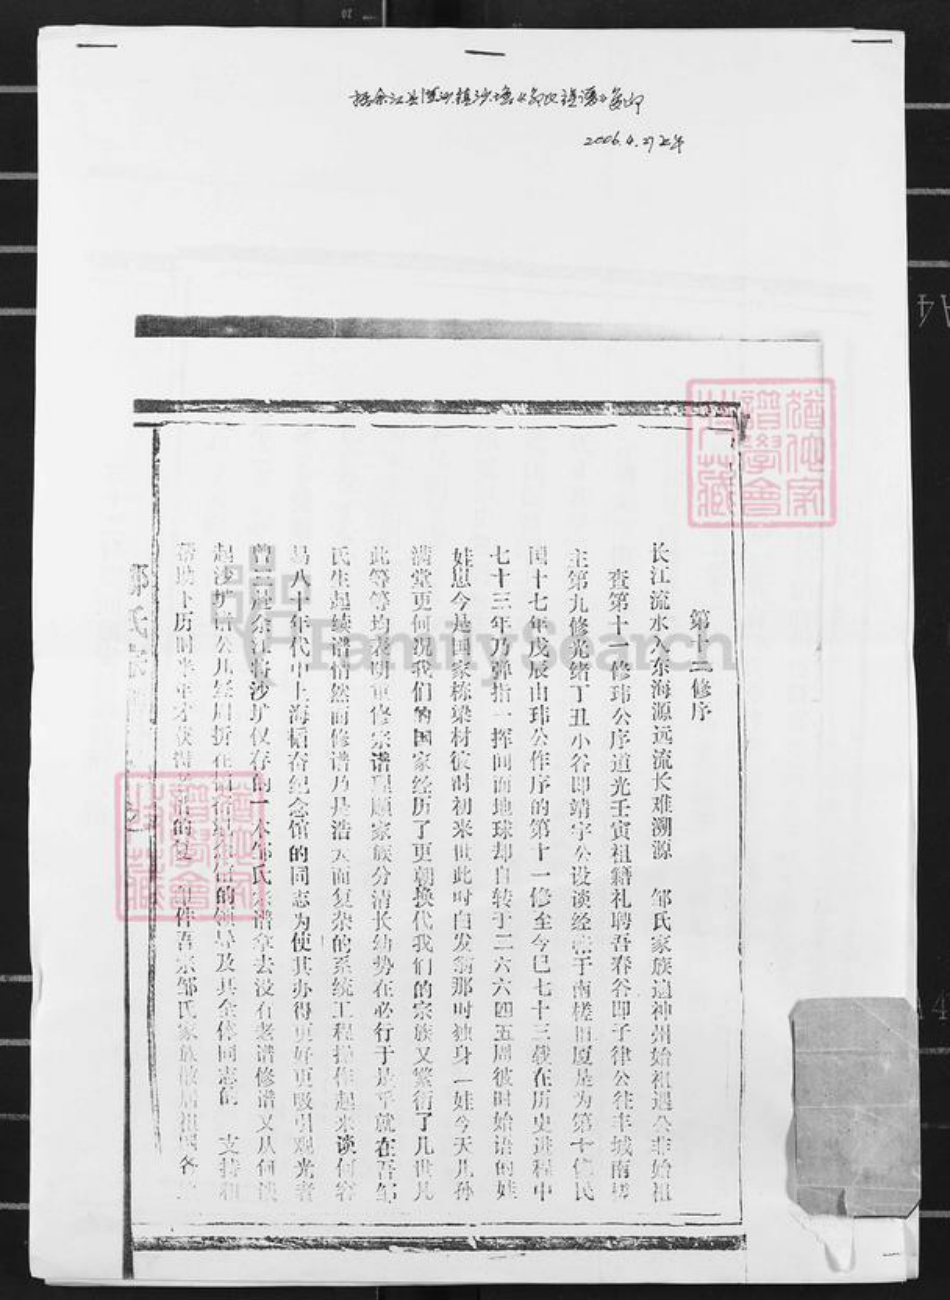 2006.4.27
第十二修序
长江流水入东海源远流长难溯源 邹氏家族遍神州始祖遇公非始祖
查第十一修玮公序道光壬寅祖籍礼聘吾春谷即子律公往丰城南槎
主第九修光绪丁丑小谷即靖宇公设谈经帐于南槎旧厦是为第十修民
国十七年戊辰由玮公作序的第十一修至今已七十三载在历史进程中
七十三年乃弹指一挥间而地球却自转于二六六四五周彼时始语的娃
娃思今是国家栋梁材彼时初来世此时白发翁那时独身一娃今天儿孙
满堂更何况我们的国家经历了更朝换代我们的宗族又繁衍了几世凡
此等等均表明重修宗谱理顺家族分清长幼势在必行于是乎就在吾邹
氏生起续谱情然而修谱乃是浩大而复杂的系统工程操作起来谈何容
易八十年代中上海韬奋纪念馆的同志为使其办得更好更吸引观光者
曾二赴余江将沙圹仅存的一本邹氏宗谱拿去没有老谱修谱又从何谈
起沙圹 公几经周折在韬奋纪念馆的领导及其全体同志的 支持和
帮助下历时半年才获得老谱的复 件吾宗邹氏家族散居祖国各
邹氏宗
FamilySearch